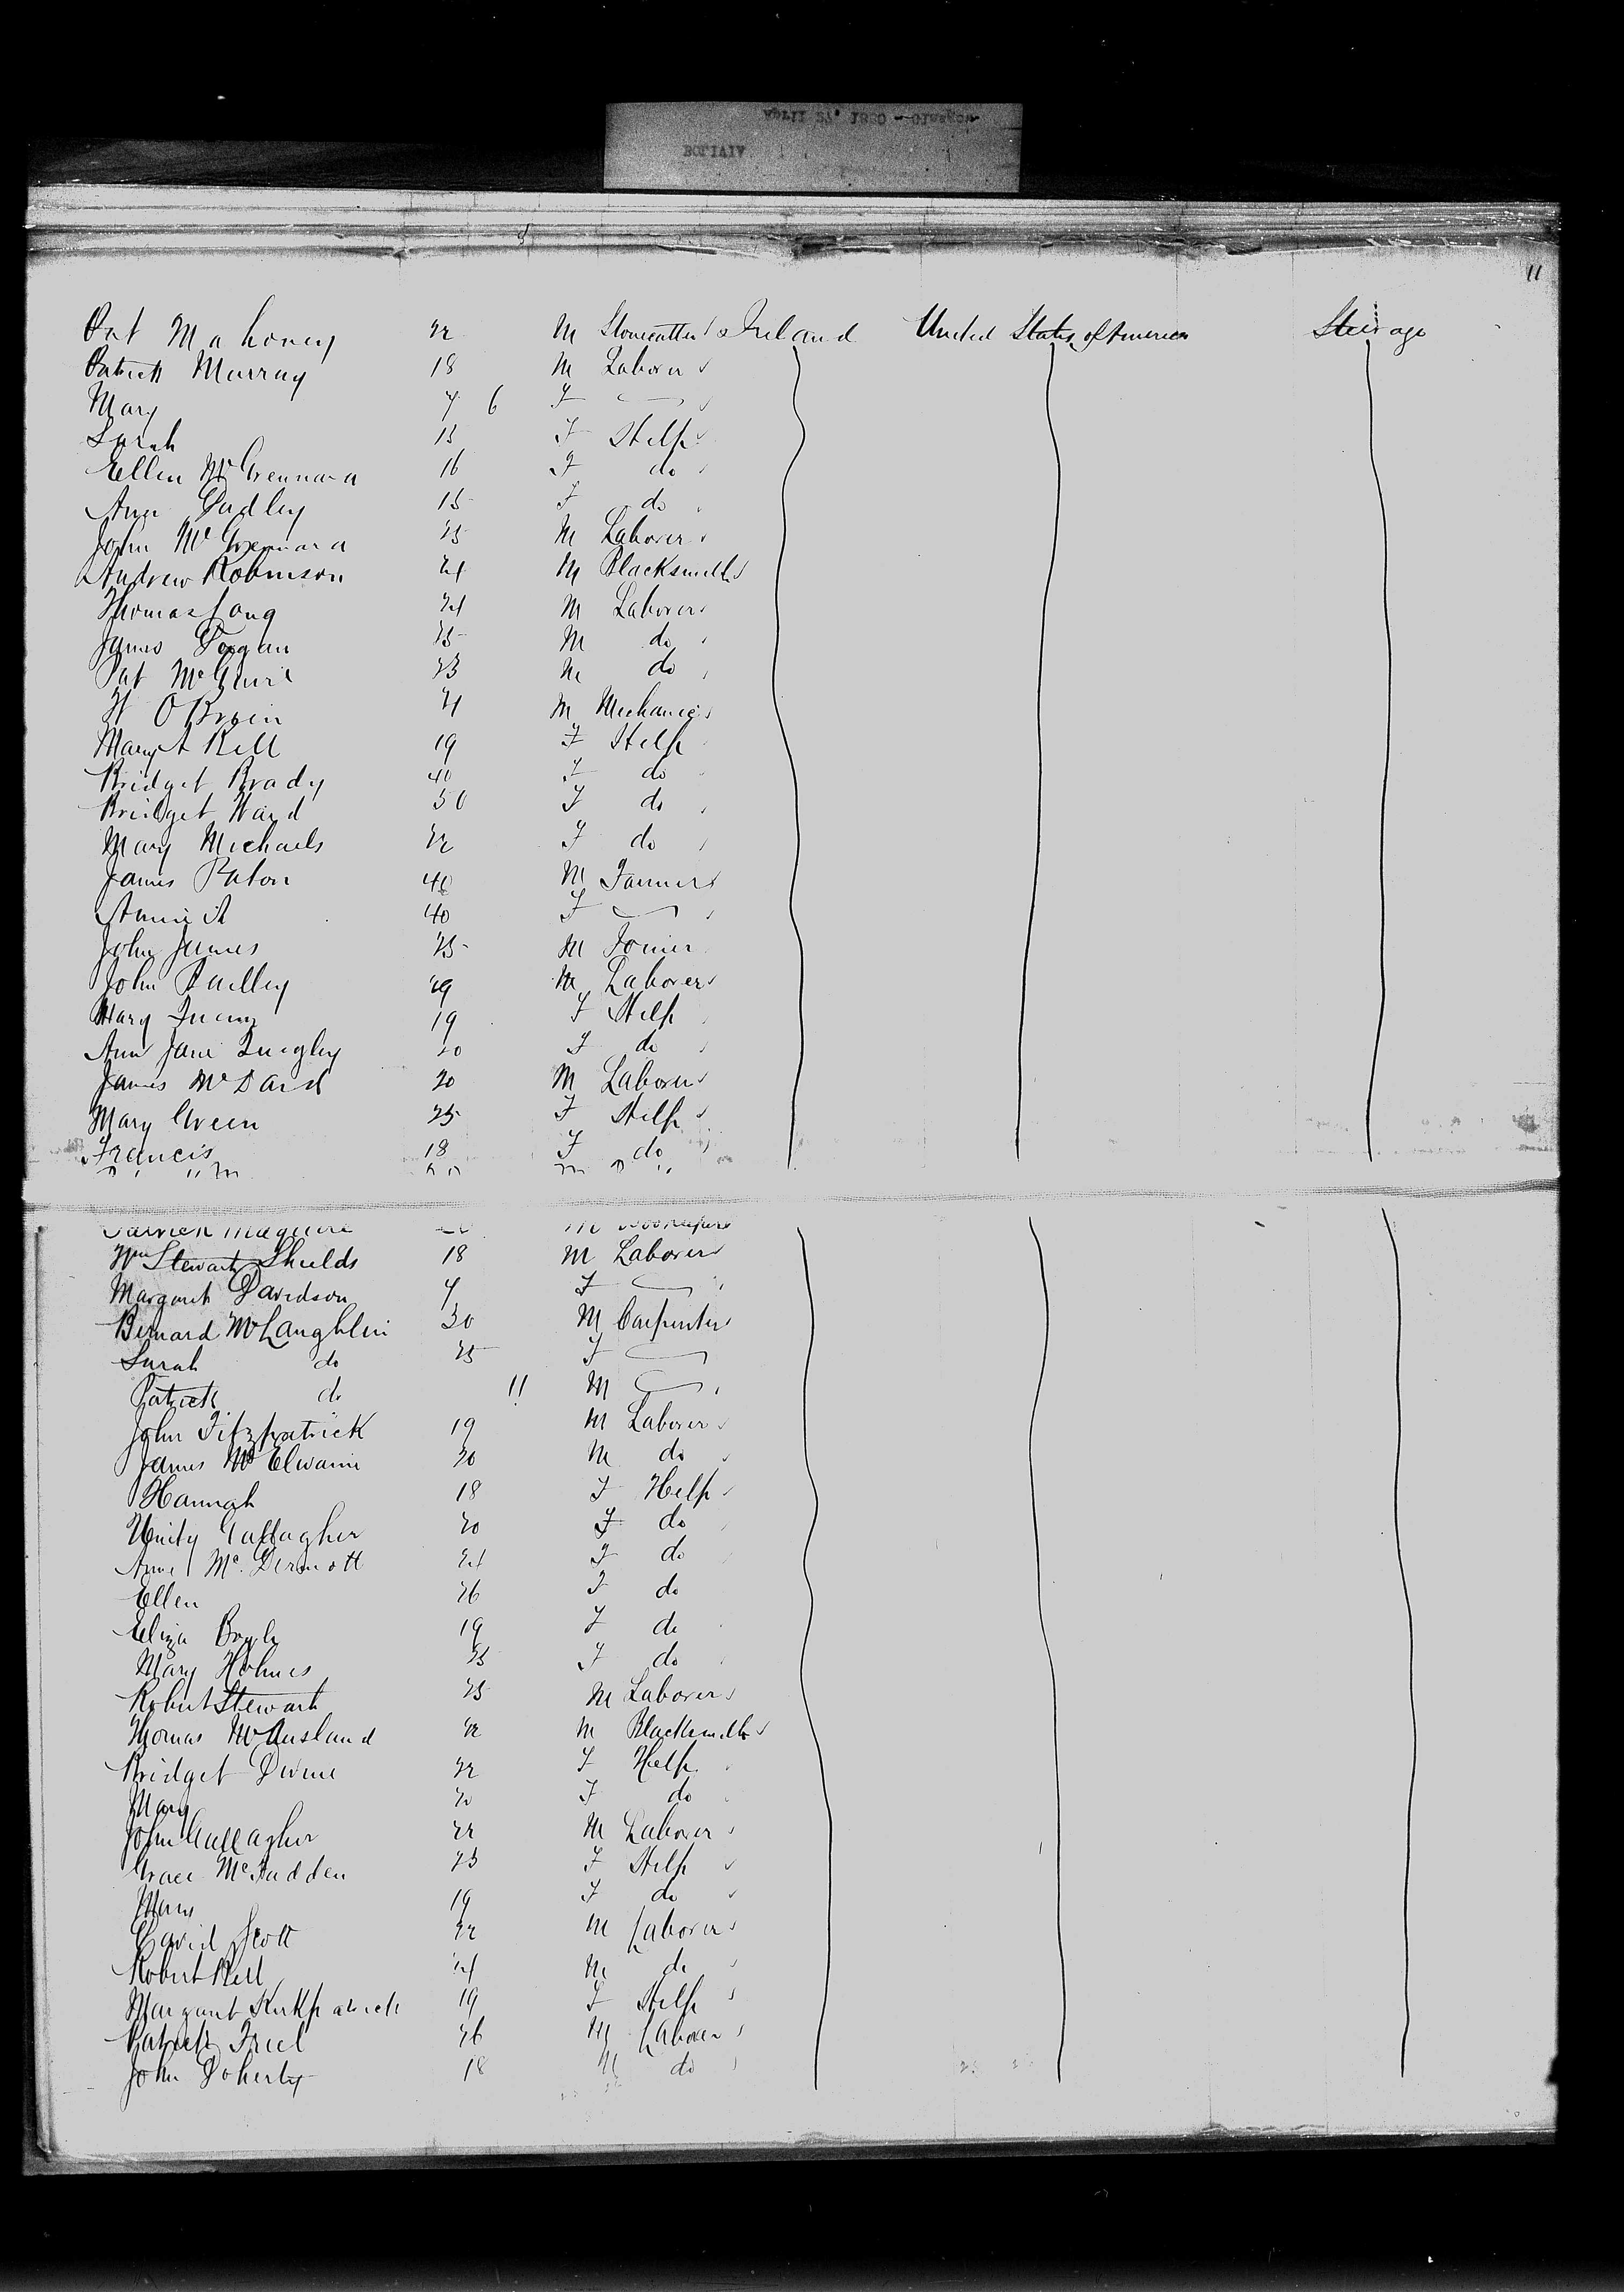 April 27, 1880 - Glasgow
BOLIVIA
11
Pat Mahoney 22 M Stonecutter Ireland United States of America Steerage
Patrick Murray 18 M Laborer
Mary 7 6 F
Sarah 15 F Help
Ellen McGrennara 16 F do
Ann Dudley 15 F do
John McGrennara 25 M Laborer
Andrew Robinson 21 M Blacksmith
Thomas Long 21 M Laborer
James 25 M do
Pat McGuire 23 M do
W OBrien 21 M Mechanic
Mary A Bell 19 F Help
Bridget Brady 40 F do
Bridget Ward 50 F do
Mary Michaels 22 F do
James Paton 40 M Farmer
Annie A 40 F
John James 25 M Joiner
John 29 M Laborer
Mary Quinn 19 F Help
Ann Jane Quigley 20 F do
James McDaid 20 M Laborer
Mary Green 25 F Help
Francis 18 F do
Patrick Maguire M Bookkeeper
Wm Stewart Shields 18 M Laborer
Margaret Davidson 7 F
Bernard McLaughlin 30 M Carpenter
Sarah do 25 F
Patrick do 11 M
John Fitzpatrick 19 M Laborer
James McElwaine 20 M do
Hannah 18 F Help
Unity Gallagher 20 F do
Anne McDermott 21 F do
Ellen 26 F do
Eliza Boyle 19 F do
Mary Holmes 23 F do
Robert Stewart 25 M Laborer
Thomas McAusland 22 M Blacksmith
Bridget Divine 22 F Help
Mary 20 F do
John Gallagher 22 M Laborer
Grace McFadden 23 F Help
Mary 19 F do
David Scott 22 M Laborer
Robert Bell 21 M do
Margaret Kirkpatrick 19 F Help
Patrick Friel 26 M Laborer
John Doherty 18 M do